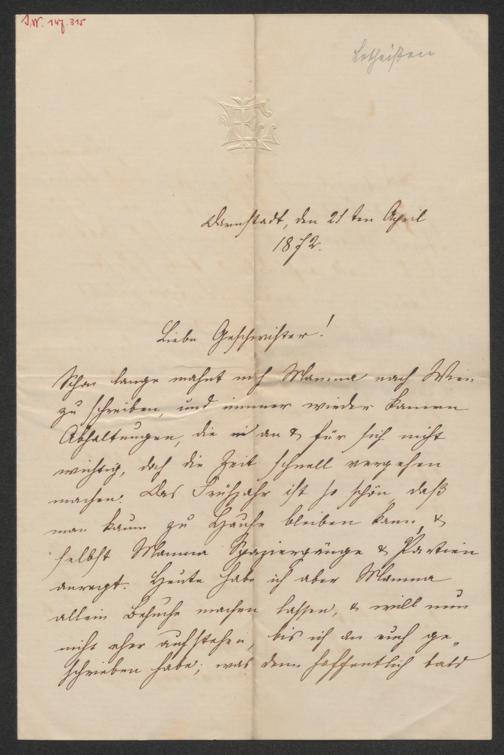 I.N. 147.315
Lotheißen
Darmstadt, den 21ten April
1872.
Liebe Geschwister!
Schon lange mahnt mich Mamma nach Wien
zu schreiben, und immer wieder kamen
Abhaltungen, die an & für sich nicht
wichtig, doch die Zeit schnell vergehen
machen. Das Frühjahr ist so schön, daß
man kaum zu Hause bleiben kann, &
selbst Mamma Spaziergänge & Partien
anregt. Heute habe ich aber Mamma
allein Besuche machen lassen, & will nun
nicht eher aufstehen, bis ich an euch ge-
schrieben habe; was denn hoffentlich bald